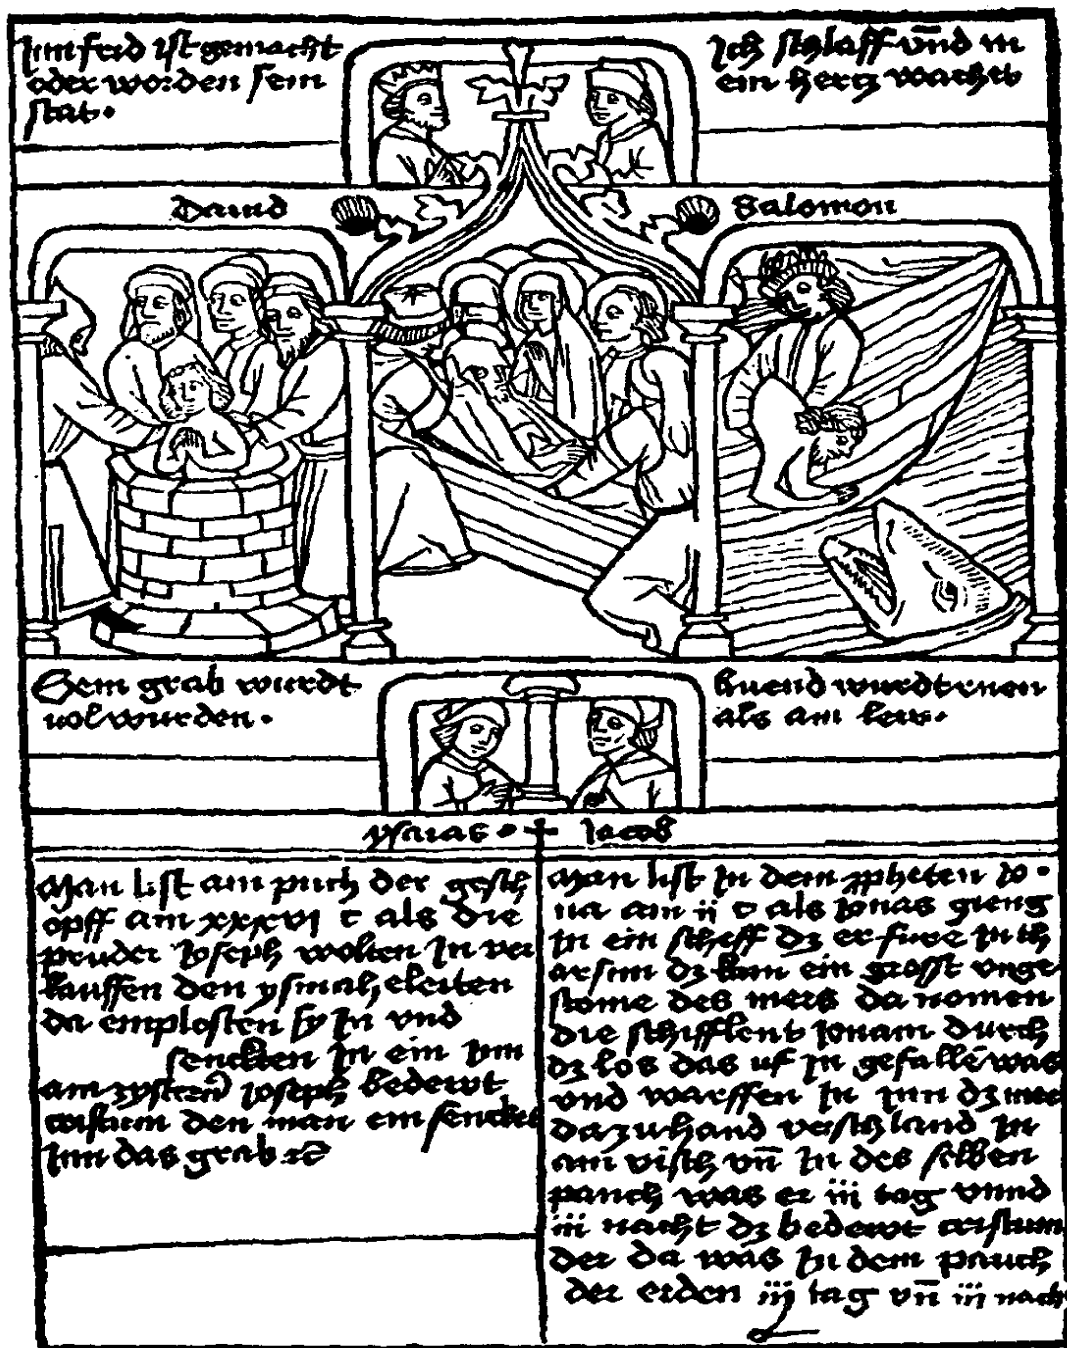 Inn frid ist gemacht
oder worden sein
stat.
Ich schlaff vn̄d m
ein hertz wachet
Dauid
Salomon
Sein grab wurdt
vol wurden.
als am lew.
ysaias. + Jacob
Man list am puch der gesch
öpff am xxxvi c als die
pruder Joseph wolten In ver
kauffen den ysmaheleiten
da emplosten sy In vnd
senckten In ein
am zystern̄ Joseph bedewt
cristum den man ein sencket
Inn das grab ⁊c̄
Man list In dem ꝓpheten Jo.
na am ii c als Jonas gieng
In ein scheff dz er fure In th
arsum dz kam ein grosst vnge
stome des mers da nomen
die schifflent Jonam durch
dz los das uf In gefallē was
vnd warffen In Inn dz mer
da zu hand verschland In
am visch vn̄ In des selben
pauch was er iii tag vnnd
iii nacht dz bedewt cristum
der da was In dem pauch
der erden iij tag vn̄ iii nach